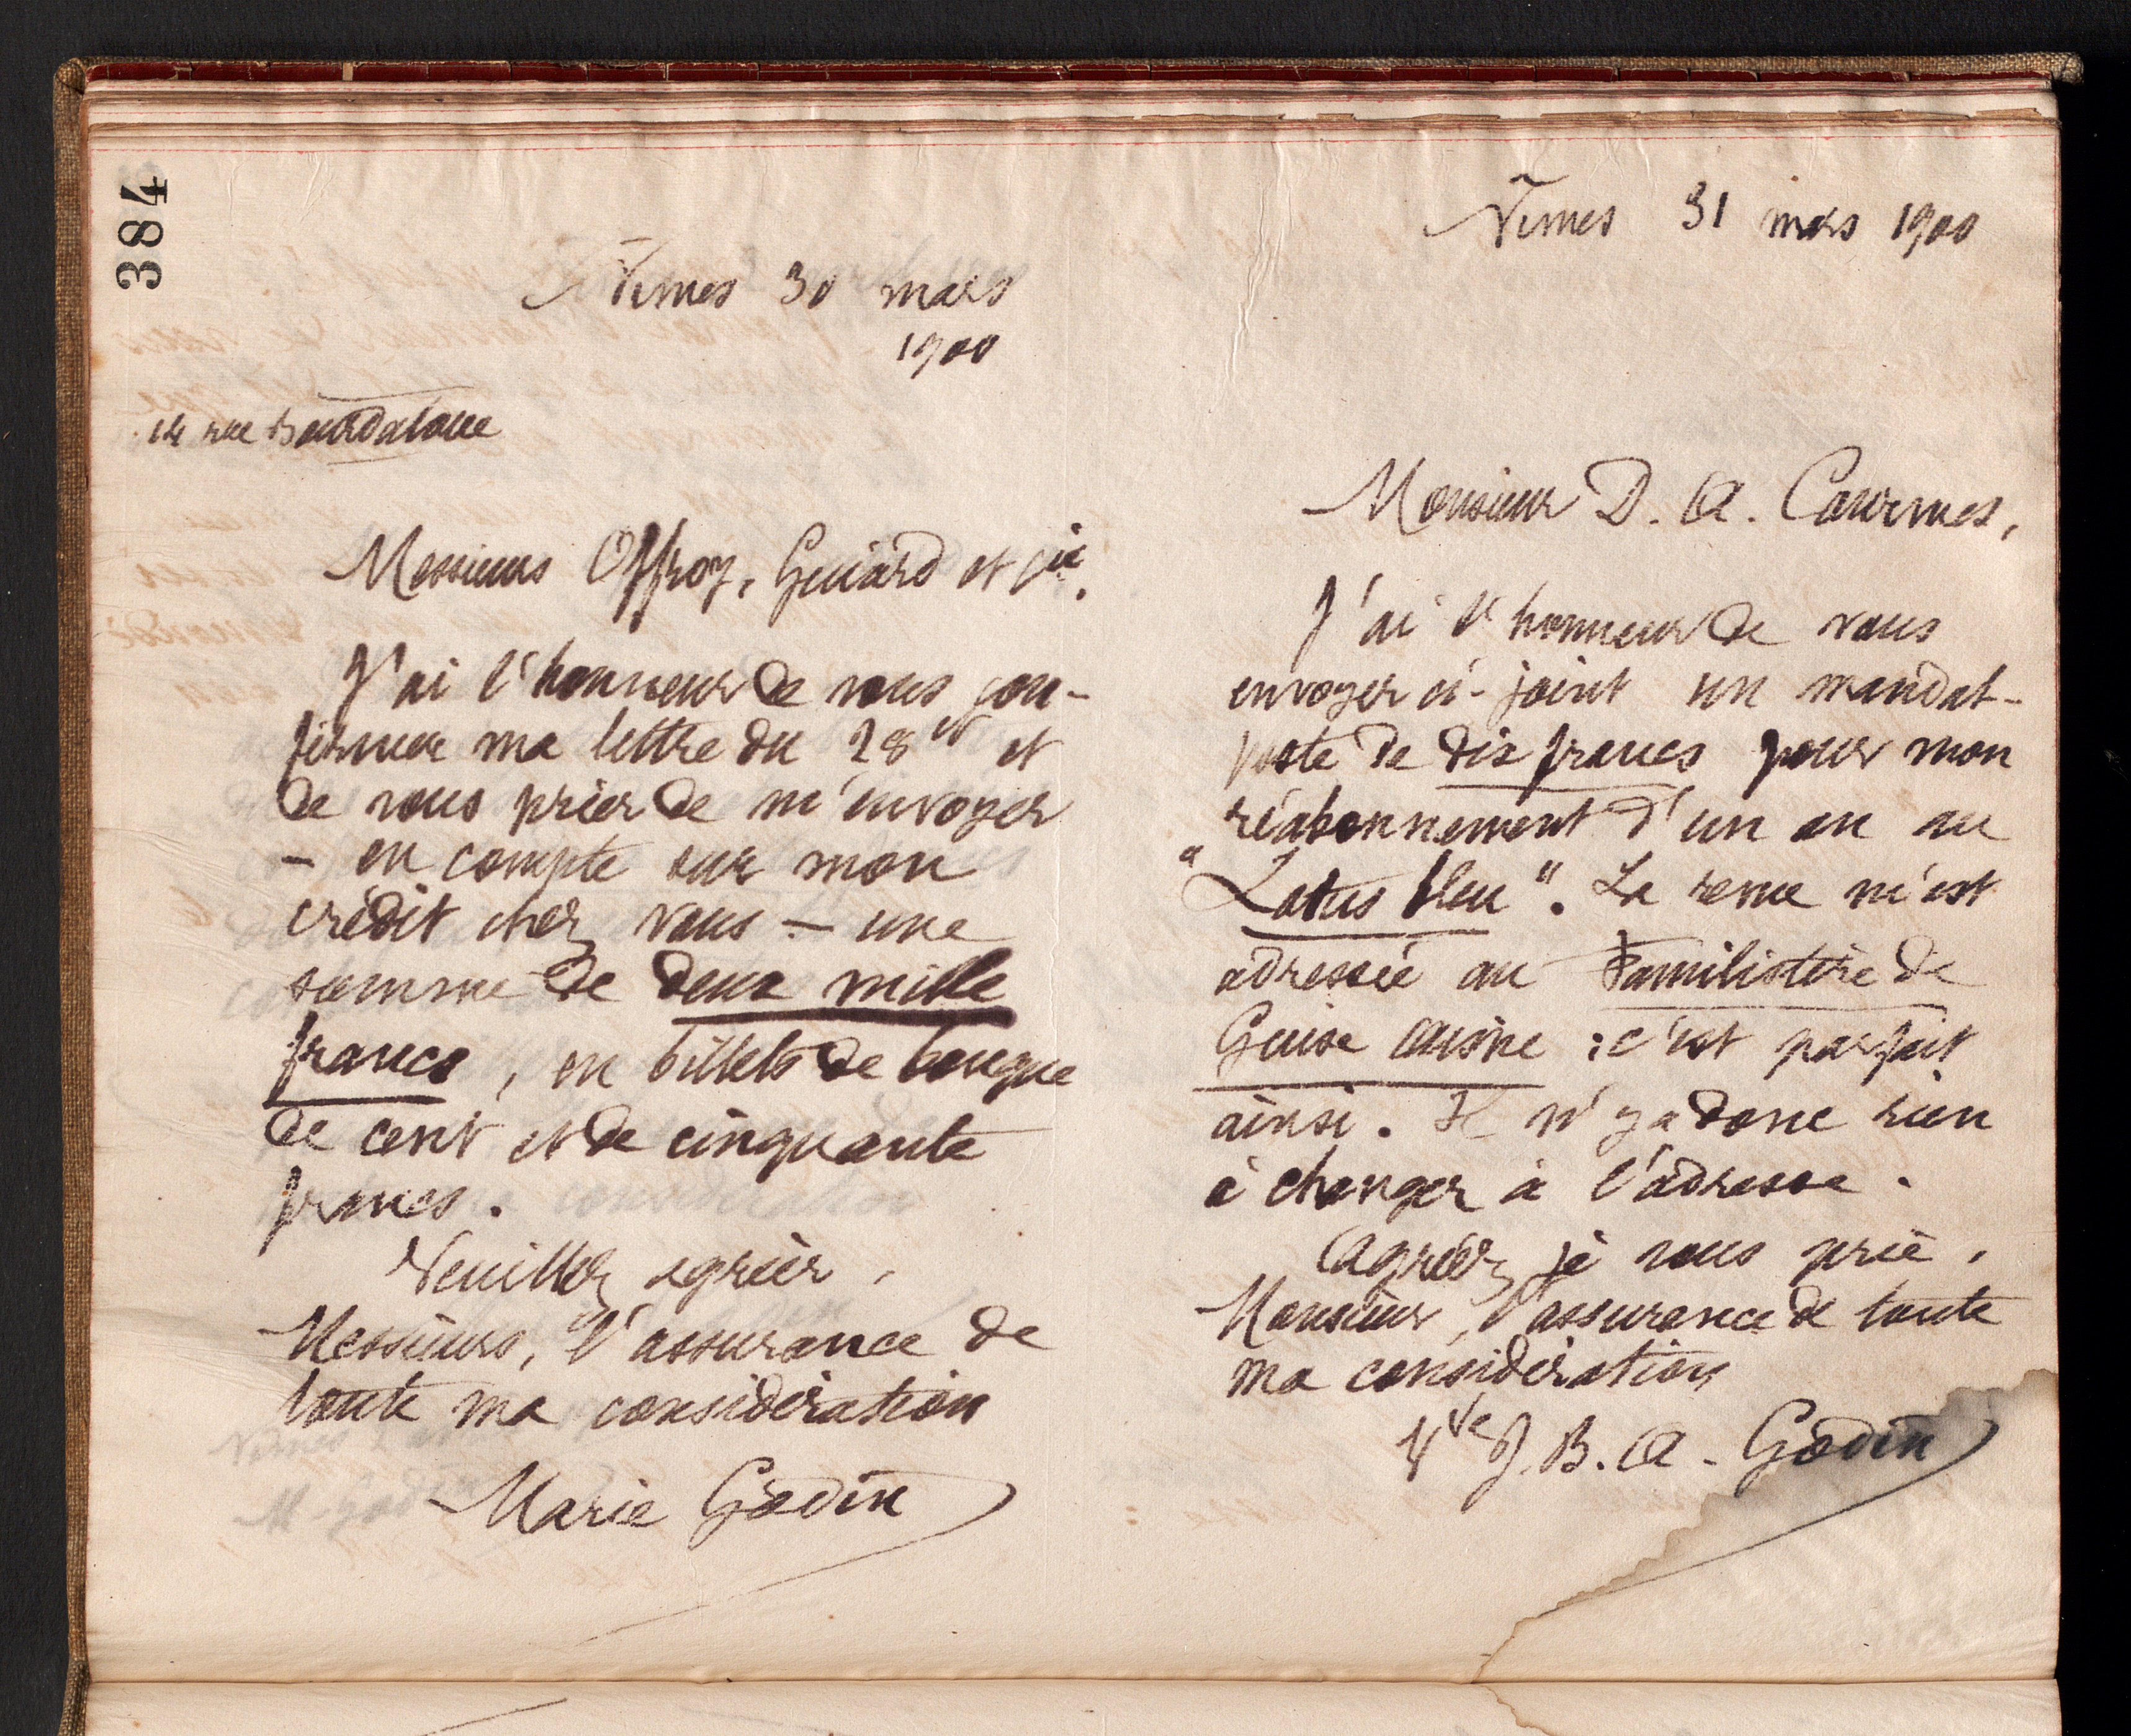 384
Nîmes 30 mars
1900
14 rue Bourdaloue
Messieurs Offroy, Guiard et Cie.
J'ai l'honneur de vous con-
firmer ma lettre du 28 ct et
de vous prier de m'envoyer
— en compte sur mon
crédit chez vous — une
somme de deux mille
francs, en billets de banque
de cent et de cinquante
francs.
Veuillez agréer,
Messieurs, l'assurance de
toute ma considération
Marie Godin
Nîmes 31 mars 1900
Monsieur D. A. Courmes,
J'ai l'honneur de vous
envoyer ci-joint un mandat-
poste de dix francs pour mon
réabonnement d'un an au
"Lotus bleu". La revue m'est
adressée au Familistère de
Guise Aisne : c'est parfait
ainsi. Il n'y a donc rien
à changer à l'adresse.
Agréez, je vous prie,
Monsieur, l'assurance de toute
ma considération
Vve J. B. A. Godin